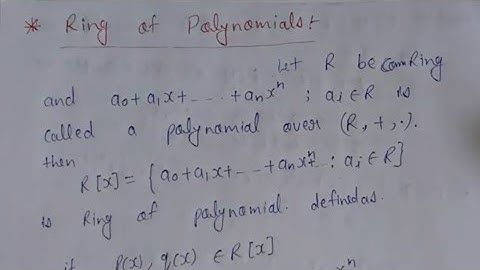 * Ring of Polynomials:-
Let R be com Ring
and a₀+a₁x+-...+aₙxⁿ ; aᵢ∈R is
called a polynomial over (R, +, ·).
then
R[x] = {a₀+a₁x+-...+aₙxⁿ+-- : aᵢ∈R}
is Ring of polynomial. defined as.
if p(x), q(x) ∈ R[x]
xⁿ